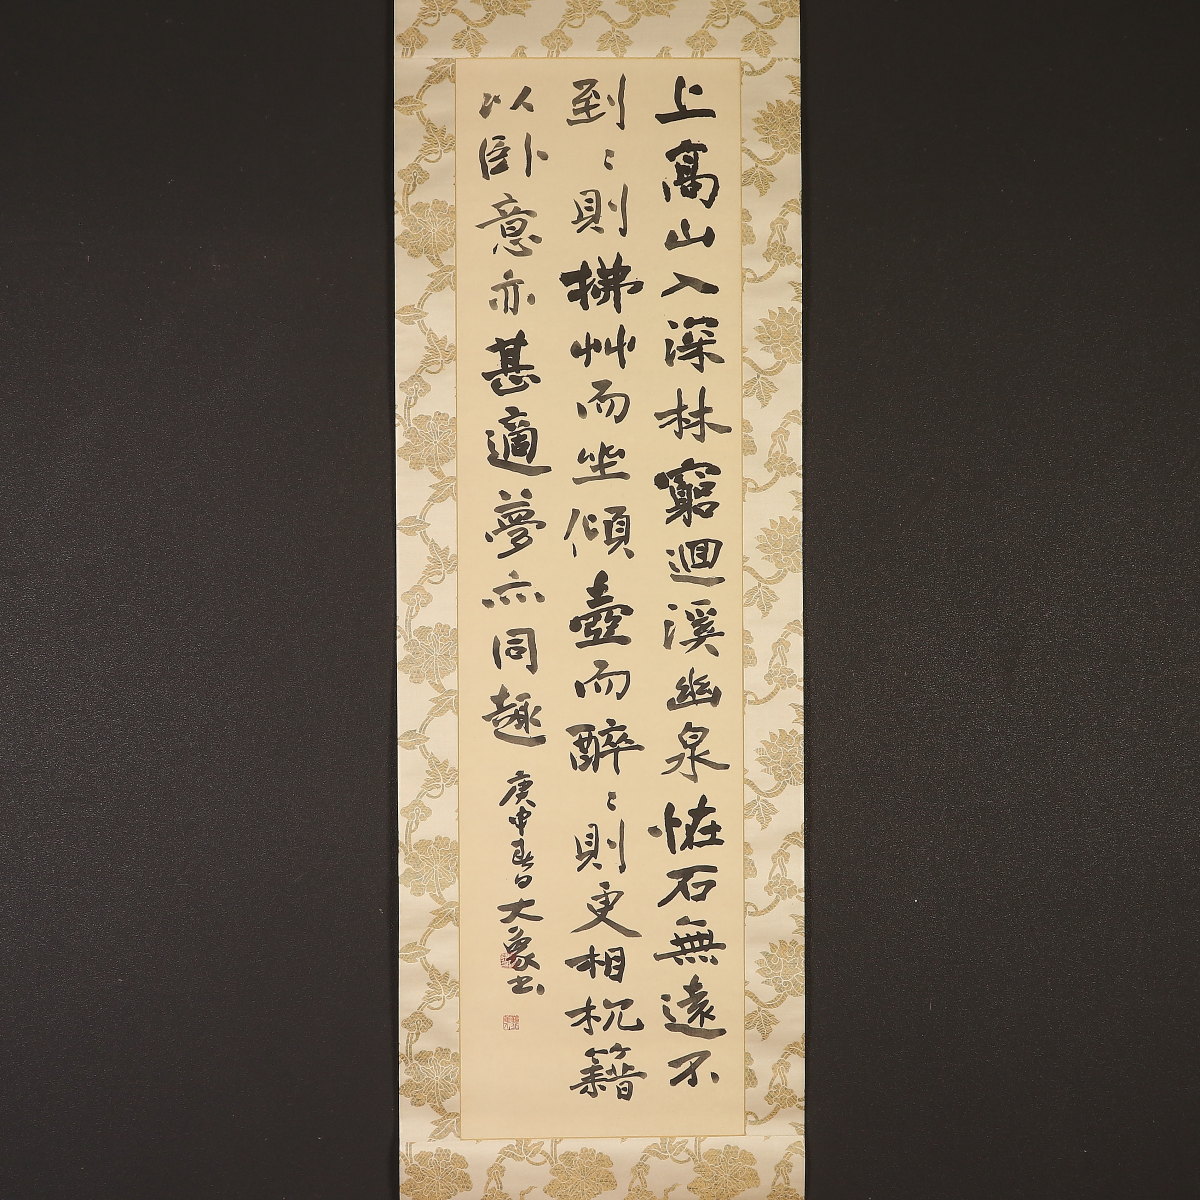 上高山入深林窮迴溪幽泉恠石無遠不
到〻則拂艸而坐傾壺而醉〻則更相枕籍
以卧意亦甚適夢亦同趣
庚申春日大象書